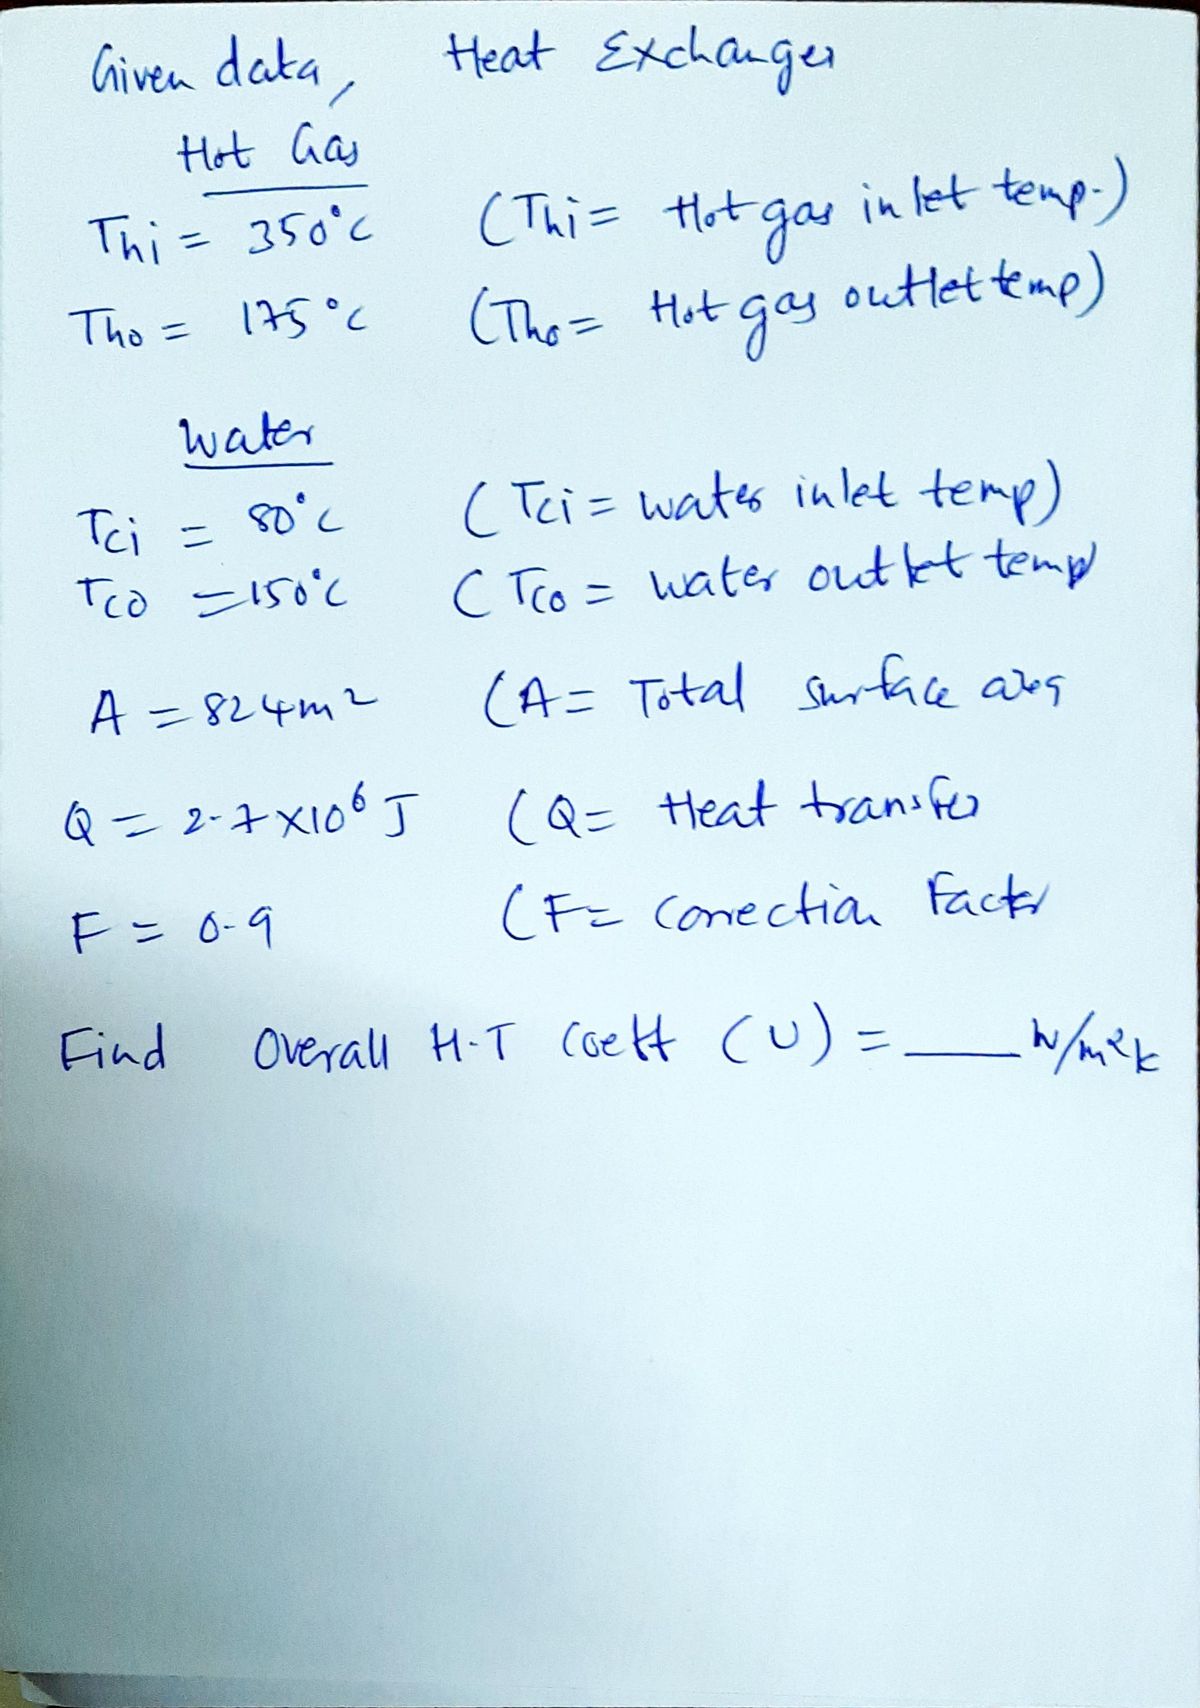 Given data, Heat Exchanger
Hot Gas
Thi = 350°C (Thi = Hot gas inlet temp.)
Tho = 175°C (Tho = Hot gas outlet temp)
Water
Tci = 80°C (Tci = water inlet temp)
Tco = 150°C (Tco = water outlet temp)
A = 824m2 (A = Total surface area
Q = 2.7 x10⁶ J (Q = Heat transfer
F = 0.9 (F = Correction Factor
Find Overall H.T Coeff (U) = ___ W/m²k